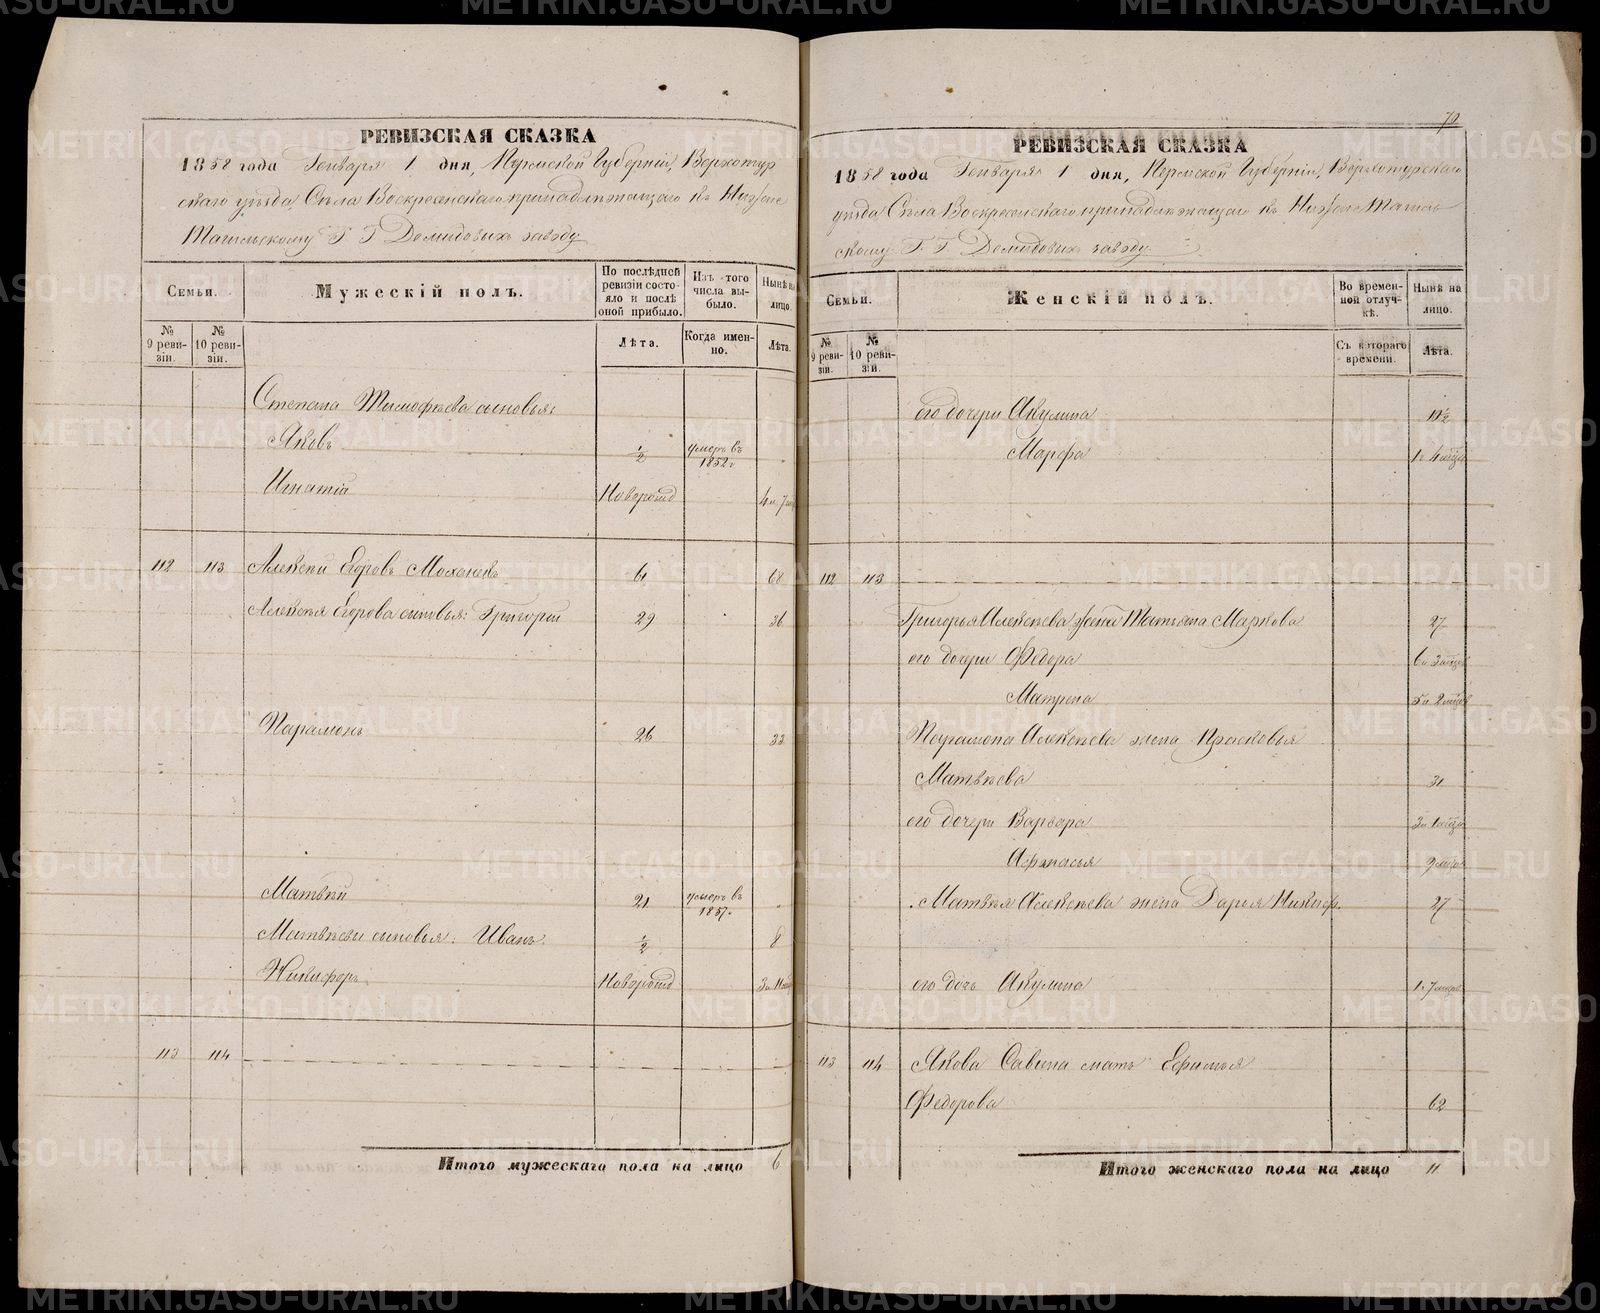 РЕВИЗСКАЯ СКАЗКА
1858 года Генваря 1 дня, Пермской Губерніи, Верхотур
скаго уѣзда, Села Воскресенскаго принадлежащаго къ Нижне
Тагильскому Г. Г. Демидовыхъ заводу
Семьи.
Мужескій полъ.
По послѣдней ревизіи состояло и послѣ оной прибыло.
Изъ того числа выбыло.
Нынѣ на лицо.
№ 9 ревизіи.
№ 10 ревизіи.
Лѣта.
Когда именно.
Лѣта.
Степана Тимофѣева сыновья:
Яковъ ½ умеръ въ 1852 г
Игнатій Новорожд 4 г. 7 мѣс
112 113 Алексѣй Егоровъ Моханевъ 61 68
Алексѣя Егорова сыновья: Григорій 29 36
Парамонъ 26 33
Матвѣй 21 умеръ въ 1857 г.
Матвѣевы сыновья: Иванъ ½ 8
Никифоръ Новорожд 3 г. 11 мѣс
113 114
Итого мужескаго пола на лицо 6
70
РЕВИЗСКАЯ СКАЗКА
1858 года Генваря 1 дня, Пермской Губерніи, Верхотурскаго
уѣзда Села Воскресенскаго принадлежащаго къ Нижне Тагиль
скому Г. Г. Демидовыхъ заводу
Семьи.
Женскій полъ.
Во временной отлучкѣ.
Нынѣ на лицо.
№ 9 ревизіи.
№ 10 ревизіи.
Съ котораго времени.
Лѣта.
его дочери Акулина 11½
Марфа 1 г. 4 мѣсц
112 113
Григорья Алексѣева жена Татьяна Маркова 27
его дочери Федора 6 г. 3 мѣсц
Матрена 5 г. 2 мѣсц
Парамона Алексѣева жена Прасковья
Матвѣева 31
его дочери Варвара 3 г. 1 мѣсц
Афанасья 9 мѣсц
Матвѣя Алексѣева жена Дарья Никиф. 27
его дочь Акулина 1 г. 7 мѣсц
113 114 Якова Савина мать Ефимья
Федорова 62
Итого женскаго пола на лицо 11
METRIKI.GASO-URAL.RU